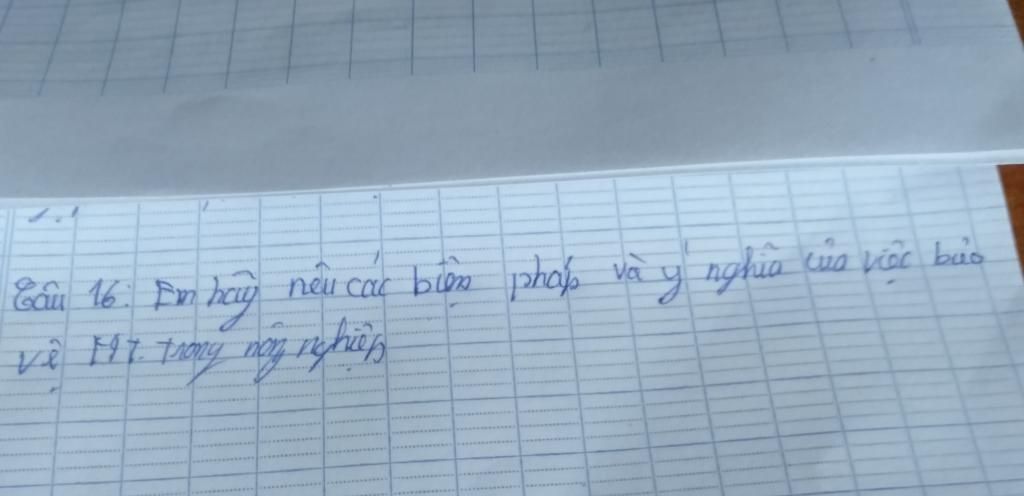 Câu 16: Em hãy nêu các biện pháp và ý nghĩa của việc bảo
vệ MT. trong nông nghiệp